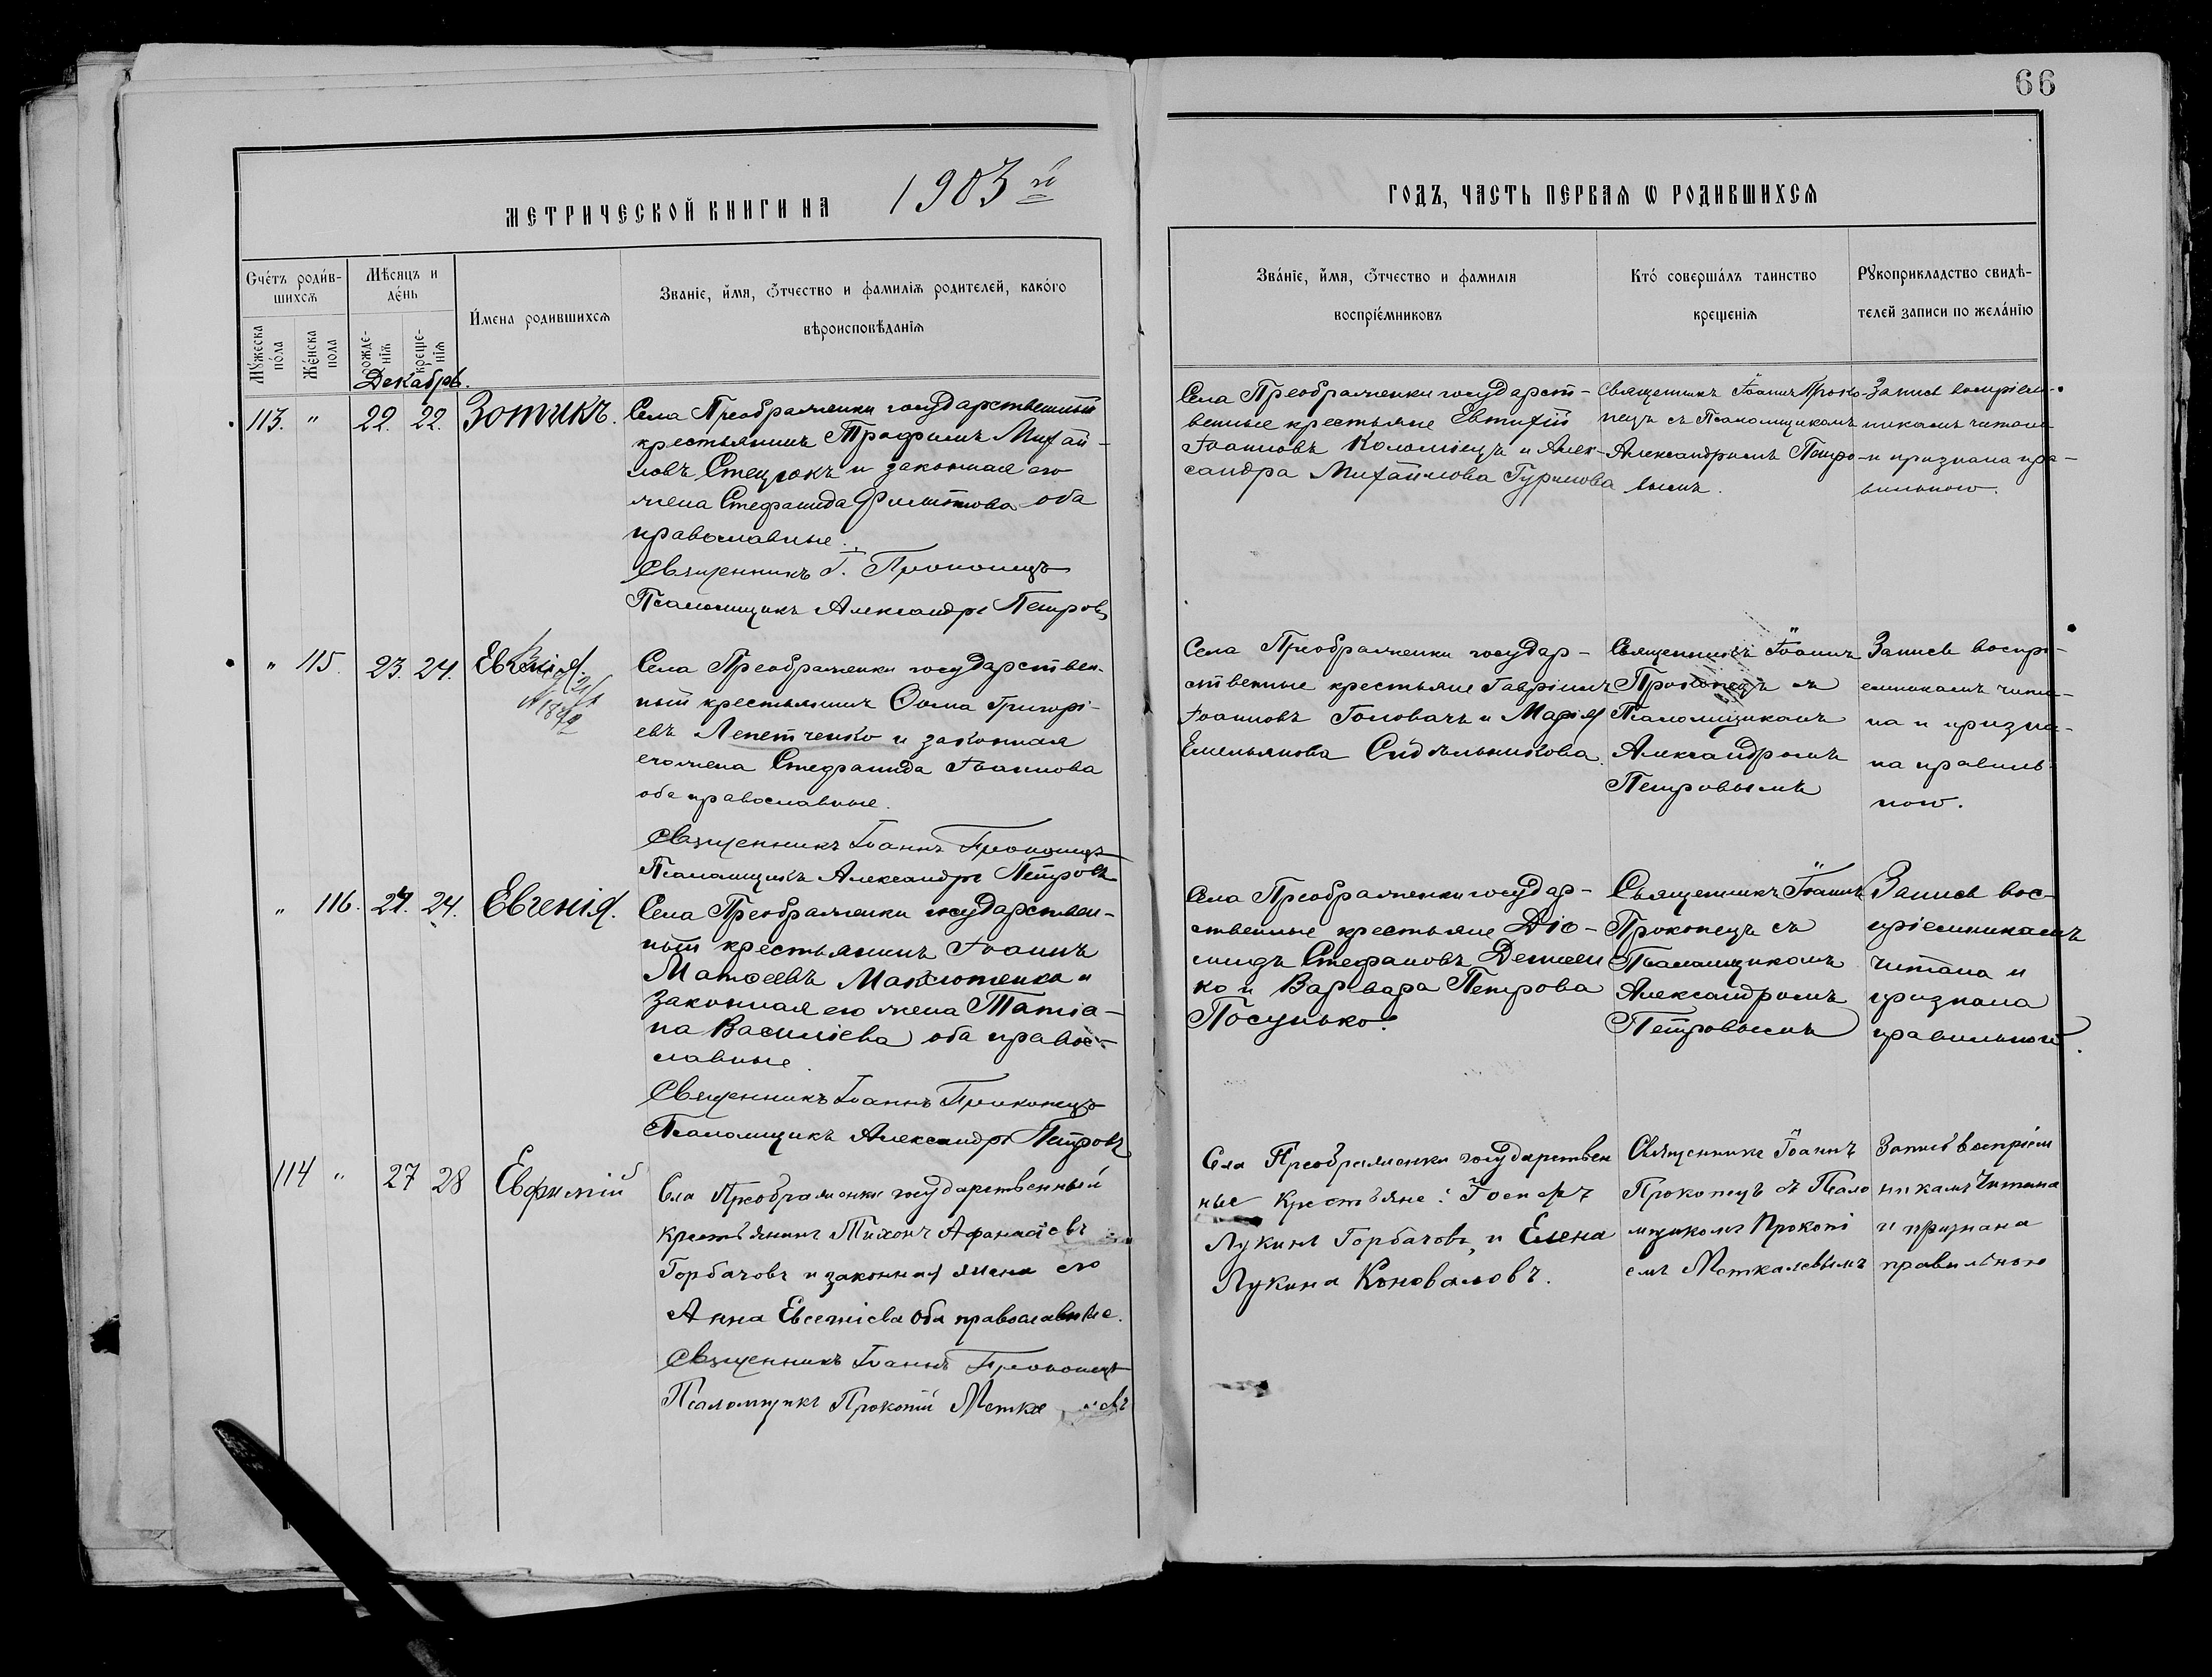 66
МЕТРИЧЕСКОЙ КНИГИ НА 1903й
ГОДЪ, ЧАСТЬ ПЕРВАѦ Ѡ РОДИВШИХСѦ
Счетъ родив-
шихсѧ
Мѣсяцъ и
день
Мужеска
пола
Женска
пола
рожде-
нїѧ
креще-
нїѧ
Имена родившихсѧ
Званіе, имя, отчество и фамилїѧ родителей, какого
вѣроисповѣданїѧ
Званіе, имя, отчество и фамиліѧ
воспріемниковъ
Кто совершалъ таинство
крещенїѧ
Рукоприкладство свидѣ-
телей записи по желанію
Декабрь.
113. " 22. 22. Зотикъ.
Села Преображенки государственный
крестьянинъ Трофимъ Михаи-
ловъ Стецюкъ и законная его
жена Стефанида Филиппова оба
православные.
Священникъ І. Прокопецъ
Псаломщикъ Александръ Петровъ
Села Преображенки государст-
венные крестьяне Евтихій
Іоанновъ Коломіецъ и Алек-
сандра Михаилова Гуринова
Священникъ Іоаннъ Проко-
пецъ съ Псаломщикомъ
Александромъ Петро-
вымъ.
Запись воспріем-
никамъ читана
и признана пра-
вильною.
" 115. 23. 24. Евгенія.
Села Преображенки государствен-
ный крестьянинъ Ѳома Григорі-
евъ Лепетченко и законная
его жена Стефанида Іоаннова
оба православные.
Священникъ Іоаннъ Прокопецъ
Псаломщикъ Александръ Петровъ
Села Преображенки государ-
ственные крестьяне Гавріилъ
Іоанновъ Головачъ и Марія
Емельянова Сидѣльникова.
Священникъ Іоаннъ
Прокопецъ съ
Псаломщикомъ
Александромъ
Петровымъ
Запись воспрі-
емникамъ чита-
на и призна-
на правиль-
ною.
" 116. 24. 24. Евгенія.
Села Преображенки государствен-
ный крестьянинъ Іоаннъ
Матѳеевъ Маклютенко и
законная его жена Татіа-
на Василіева оба право-
славные.
Священникъ Іоаннъ Прокопецъ
Псаломщикъ Александръ Петровъ
Села Преображенки государ-
ственные крестьяне Діо-
мидъ Стефановъ
ко и Варвара Петрова
Посунько.
Священникъ Іоаннъ
Прокопецъ съ
Псаломщикомъ
Александромъ
Петровымъ
Запись вос-
пріемникамъ
читана и
признана
правильною.
114 " 27 28 Евфимій
Села Преображенки государственный
крестьянинъ Тихонъ Афанасіевъ
Горбачовъ и законная жена его
Анна Евсеніева оба православные.
Священникъ Іоаннъ Прокопецъ
Псаломщикъ Прокопій
Села Преображенки государствен
ные крестьяне: Іосифъ
Лукинъ Горбачовъ, и Елена
Лукина Коноваловъ.
Священникъ Іоаннъ
Прокопецъ съ Псало
мщикомъ Прокопі
емъ Меткалевымъ
Запись воспріем
никамъ читана
и признана
правильною